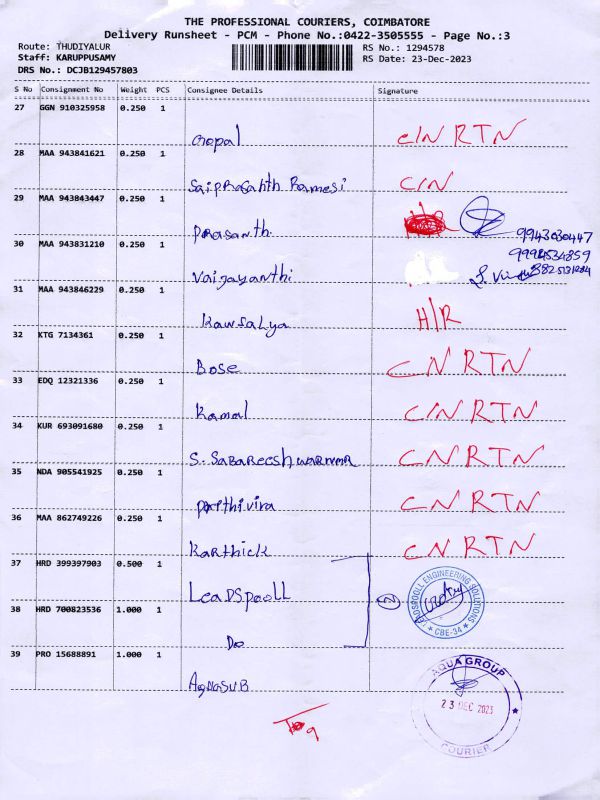 THE PROFESSIONAL COURIERS, COIMBATORE
Delivery Runsheet - PCM - Phone No.:0422-3505555 - Page No.:3
Route: THUDIYALUR
RS No.: 1294578
Staff: KARUPPUSAMY
RS Date: 23-Dec-2023
DRS No.: DCJB129457803
S No Consignment No Weight PCS Consignee Details Signature
27 GGN 910325958 0.250 1
Gopal C/N RTN
28 MAA 943841621 0.250 1
Saiprasahth Ramesi C/N
29 MAA 943843447 0.250 1
Prasanth
9943030447
30 MAA 943831210 0.250 1
9994534859
Vaijayanthi
31 MAA 943846229 0.250 1
Kawsalya H/R
32 KTG 7134361 0.250 1
Bose CN RTN
33 EDQ 12321336 0.250 1
Kamal C/N RTN
34 KUR 693091680 0.250 1
S. Sabareeshwarnma CN RTN
35 NDA 905541925 0.250 1
Prithivira CN RTN
36 MAA 862749226 0.250 1
Karthick CN RTN
37 HRD 399397903 0.500 1
Leadspooll
LEADSPOOLL ENGINEERING SOLUTIONS
* CBE-34 *
38 HRD 700823536 1.000 1
Do
39 PRO 15688891 1.000 1
Aquasub
AQUA GROUP
23 DEC 2023
COURIER